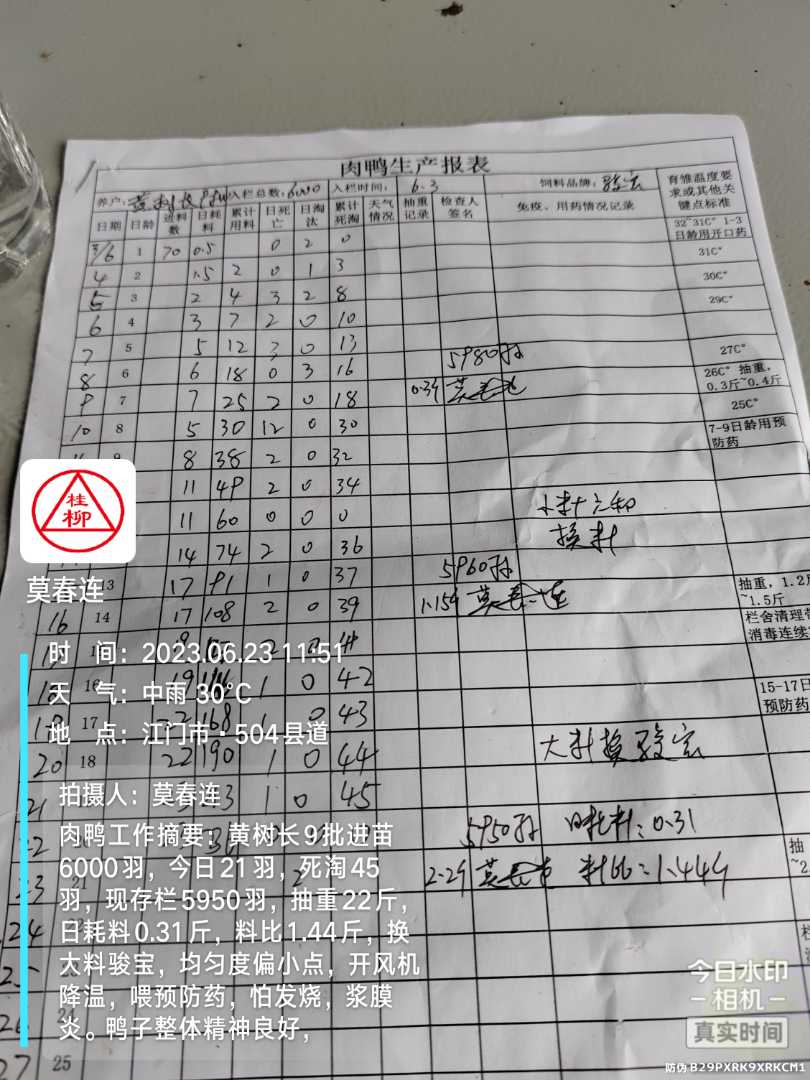 肉鸭生产报表
养户: 黄树长 入栏总数: 6000 入栏时间: 6.3 饲料品牌: 骏宝 育雏温度要求或其他关键点标准
日期 日龄 进料数 日耗料 累计用料 日死亡 日淘汰 累计死淘 天气情况 抽重记录 检查人签名 免疫、用药情况记录
3/6 1 70 0.5 0 2 0 32~31C° 1-3日龄用开口药
4 2 1.5 2 0 1 3 31C°
5 3 2 4 3 2 8 30C°
6 4 3 7 2 0 10 29C°
7 5 5 12 3 0 13 5980羽 27C°
8 6 6 18 0 3 16 26C° 抽重,0.3斤~0.4斤
9 7 7 25 2 0 18 0.39 25C°
10 8 5 30 12 0 30 7-9日龄用预防药
9 8 38 2 0 32
11 49 2 0 34
11 60 0 0 0
14 74 2 0 36 换料
13 17 91 1 0 37 5960羽
16 14 17 108 2 0 39 1.159 莫春连 抽重,1.2斤~1.5斤
栏舍清理 消毒连续
16 19 1 0 42
17 168 1 0 43 15-17日 预防药
20 18 22 190 1 0 44 大料换骏宝
21 1 0 45
5950羽 日耗料:0.31
23 21 2 2.29 料比=1.449 抽
24
24
27 25
桂柳
莫春连
时 间: 2023.06.23 11:51
天 气: 中雨 30°C
地 点: 江门市·504县道
拍摄人: 莫春连
肉鸭工作摘要: 黄树长9批进苗
6000羽，今日21羽，死淘45
羽，现存栏5950羽，抽重22斤，
日耗料0.31斤，料比1.44斤，换
大料骏宝，均匀度偏小点，开风机
降温，喂预防药，怕发烧，浆膜
炎。鸭子整体精神良好，
今日水印
-相机-
真实时间
防伪 B29PXRK9XRKCM1